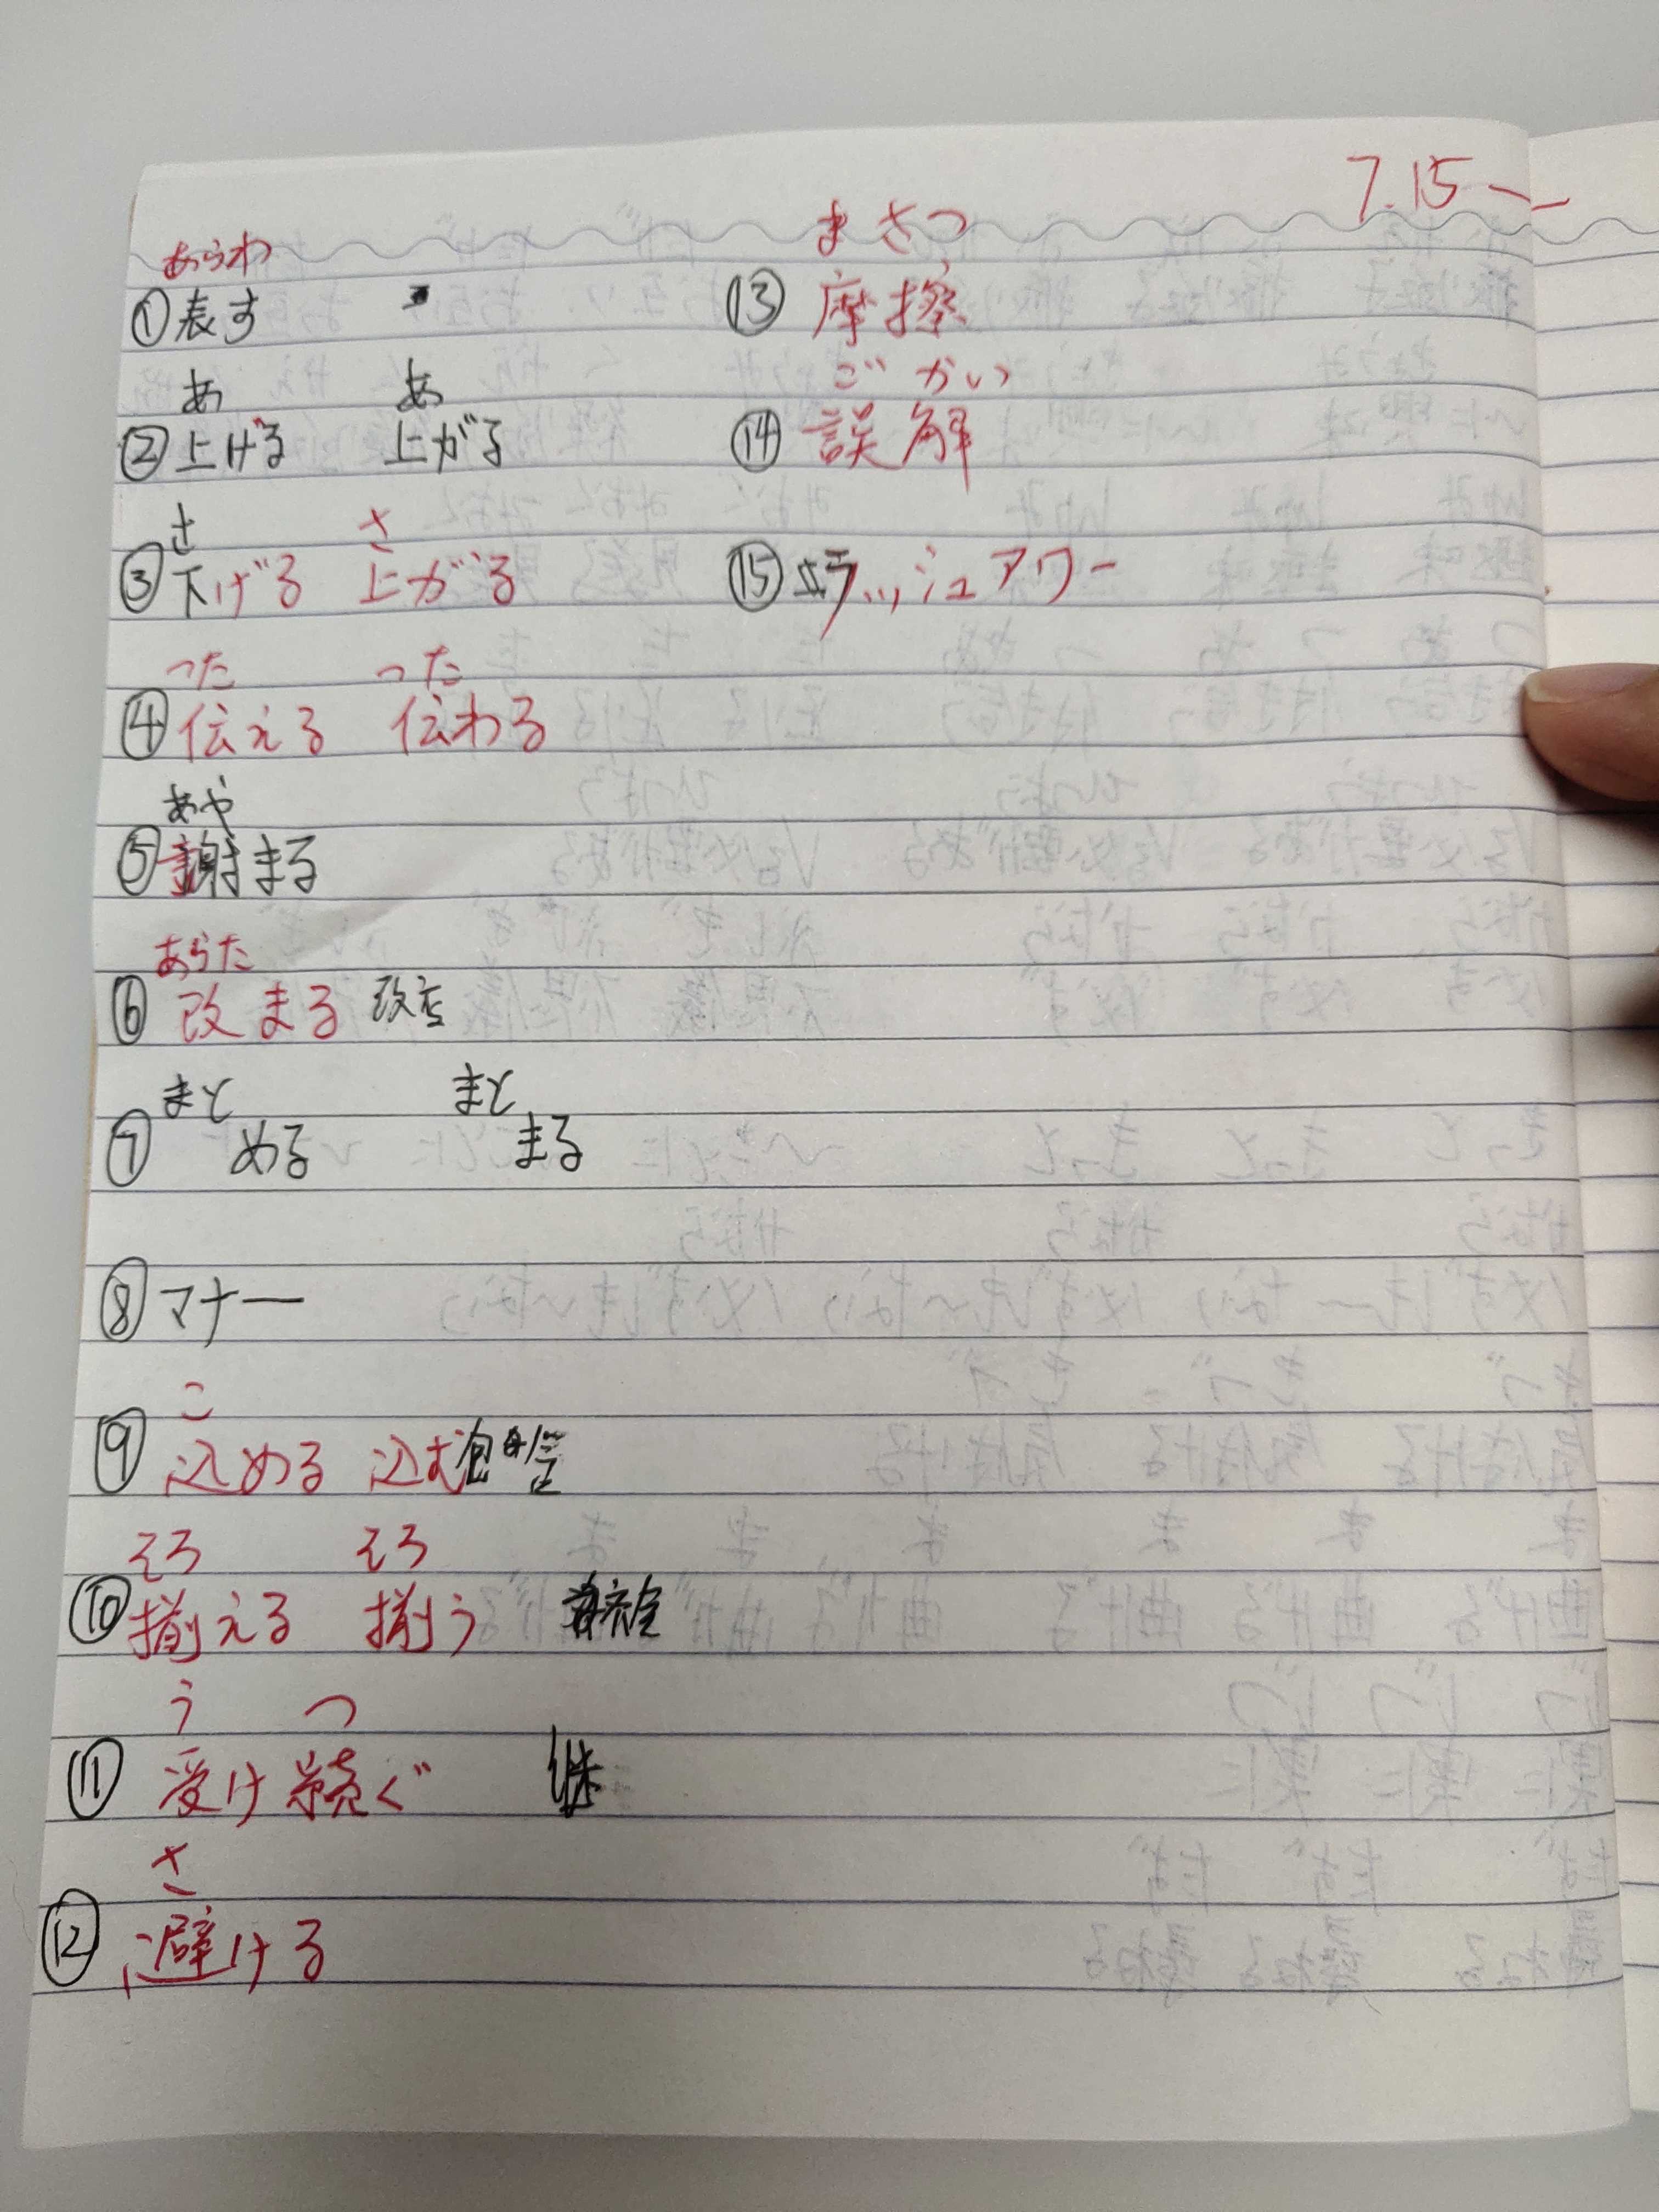 7.15
あらわ
①表す
あ あ
②上げる 上がる
さ さ
③下げる 上がる
つた つた
④伝える 伝わる
あや
⑤謝まる
あらた
⑥改まる 改
まと まと
⑦ める まる
⑧マナー
こ
⑨込める 込む
そろ そろ
⑩揃える 揃う
う つ
⑪受け続ぐ
さ
⑫避ける
まさつ
⑬摩擦
ごかい
⑭誤解
⑮ラッシュアワー